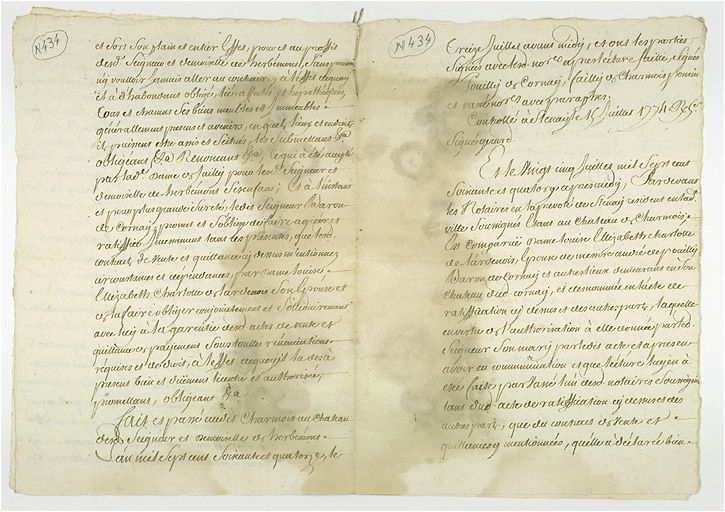 N 434
et sors son plain et entier Effet, pour et au proffit
desd. Seigneur et demoiselle de herbemons, sans pouvoir
ny voulloir jamais aller au contraire, à l'effet de quoy
il a d'habondans obligé, lié, affecté et hypothéqué
tous et chacuns ses biens meubles et Immeubles
générallement presens et avenirs, en quels lieux et endroits
ils puissent estre assis et scitués, les submettans &a
obligeans &a Renoncans &a, ce qui a été accepté
par lad. Dame de failly pour lesd. Seigneur et
demoiselle de herbemons ses enfans; Et à l'instans
et pour plus grande sureté, ledit Seigneur Baron
de Cornay, promet et s'oblige de faire agréer et
ratiffier Incessamment tans les présentes, que led.
contract de vente et quittances cy dessus mentionnez
circonstances et dépendances, par Dame Louise
Elizabeth Charlotte de lardenois son Epouse et
de la faire obliger conjointement et solidairement
avec luy à la garentie desd. actes de vente et
quittance de payement sous toutte renonciations
réquises et de droit, à l'effet de quoy il la dès à
présent bien et duement licentié et authorisée,
promettant, obligeans &a
fait et passé audit Charmois au Chateau
desd. Seigneur et demoiselle de herbemons.
L'an mil sept cens soixante et quatorze, le
N 434
treize Juillet avant midy, et ont les parties
signés avec led. nore. après lecture faitte, signés
Pouilly de Cornay, failly de Charmois pouvin
et vas nore. avec paraphes.
Controllé à Stenay le 15 Juillet 1774 Rç.
signé guiard.
Et le Vingt cinq Juillet mil sept cens
soixante et quatorze apres midy, Pardevans
les Notaires en la prevoté de Stenay résidens en lad.
ville soussignés Etans au Chateau de Charmois.
Est Comparüe Dame Louise Elizabeth charlotte
de lardenois, Epouse de messire andré de pouilly
Baron de Cornay et autres lieux demeurans en son
Chateau dud. cornay, et dénommée en l'acte de
ratiffication cy dessus et des autres parts, laquelle
en vertu de l'authorisation à elle donnée par led.
Seigneur son mary par ledit acte et apres en
avoir eu communication et que lecture luy en à
eté faite par l'ané un desd. notaires soussignés
tant dud. acte de ratiffication cy dessus et des
autres parts, que du contract de vente et
quittances y mentionnées, qu'elle à déclaré bien